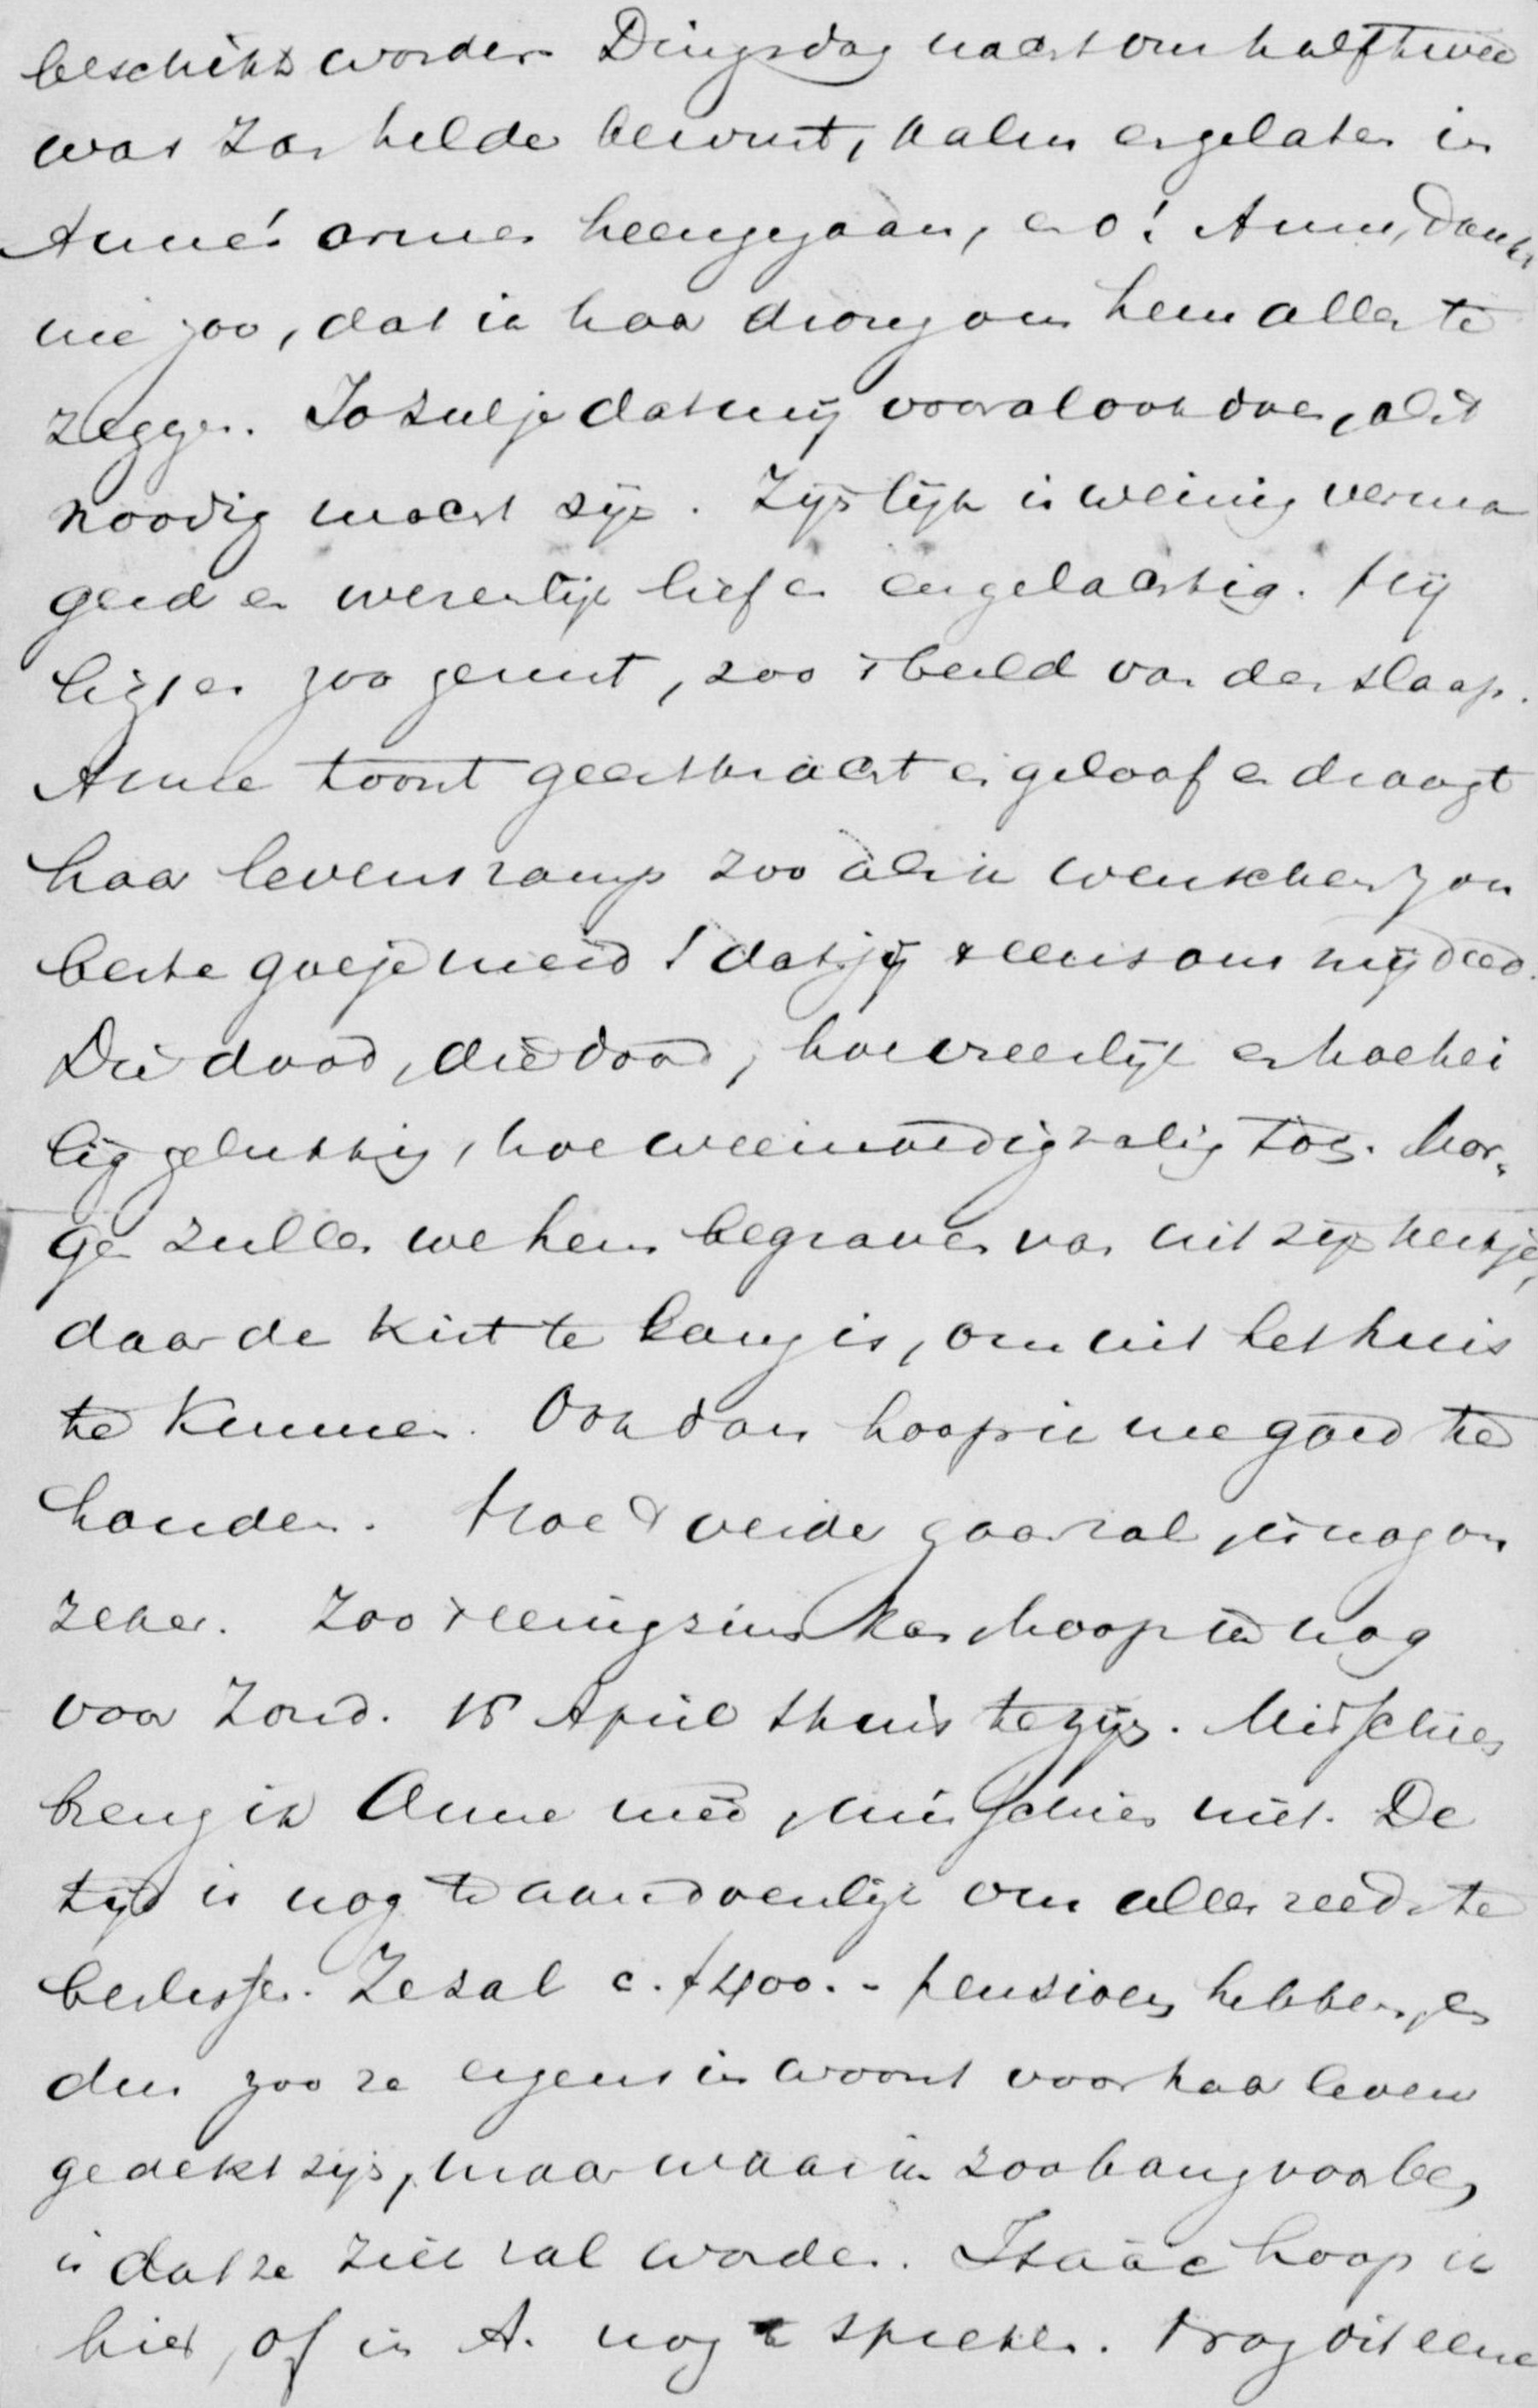 beschikt worden Dingsdag nacht om half twee
was Jan helder bewust, kalm en gelaten in
Anne's armen heengegaan, en o! Anne, dankt
me zoo, dat ik haar drong om hem alles te
zeggen. Jo zul je dat mij vooral ook doen, als 't
noodig mocht zijn. Zijn lijk is weinig verma
gerd en wezenlijk lief en engelachtig. Hij
ligt er zoo gerust, zoo 't beeld van den slaap.
Anne toont geestkracht en geloof en draagt
haar levensramp zoo als ik wenschen zou
beste goeje meid! dat jij 't eens om mij deed.
Die dood, die dood, hoe vreeselijk en hoe hei
lig gelukkig, hoe weemoedig zalig tog. Mor-
gen zullen we hem begraven van uit zijn kerkje,
daar de kist te lang is, om uit het huis
te kunnen. Ook dan hoop ik me goed te
houden. Hoe 't verder gaan zal, is nog on
zeker. Zoo 't eenigzins kan, hoop ik nog
voor Zond. 15 April thuis te zijn. Misschien
breng ik Anne mee, misschien niet. De
tijd is nog te aandoenlijk om alles reeds te
beslissen. Ze zal c. f 400.- pensioen hebben, en
dus zoo ze ergens in woont voor haar leven
gedekt zijn, maar waar ik zoo bang voor ben,
is dat ze ziek zal worden. Isaäc hoop ik
hier, of in A. nog te spreken. Vraag dit eene